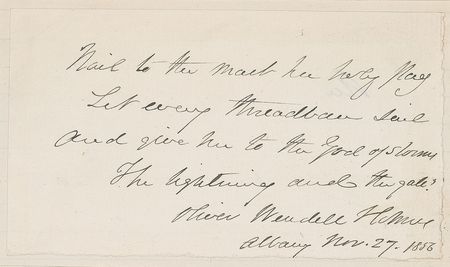 Nail to the mast her holy flag
Set every threadbare sail
And give her to the God of Storms
The lightning and the gale!
Oliver Wendell Holmes
Albany Nov. 27. 1856